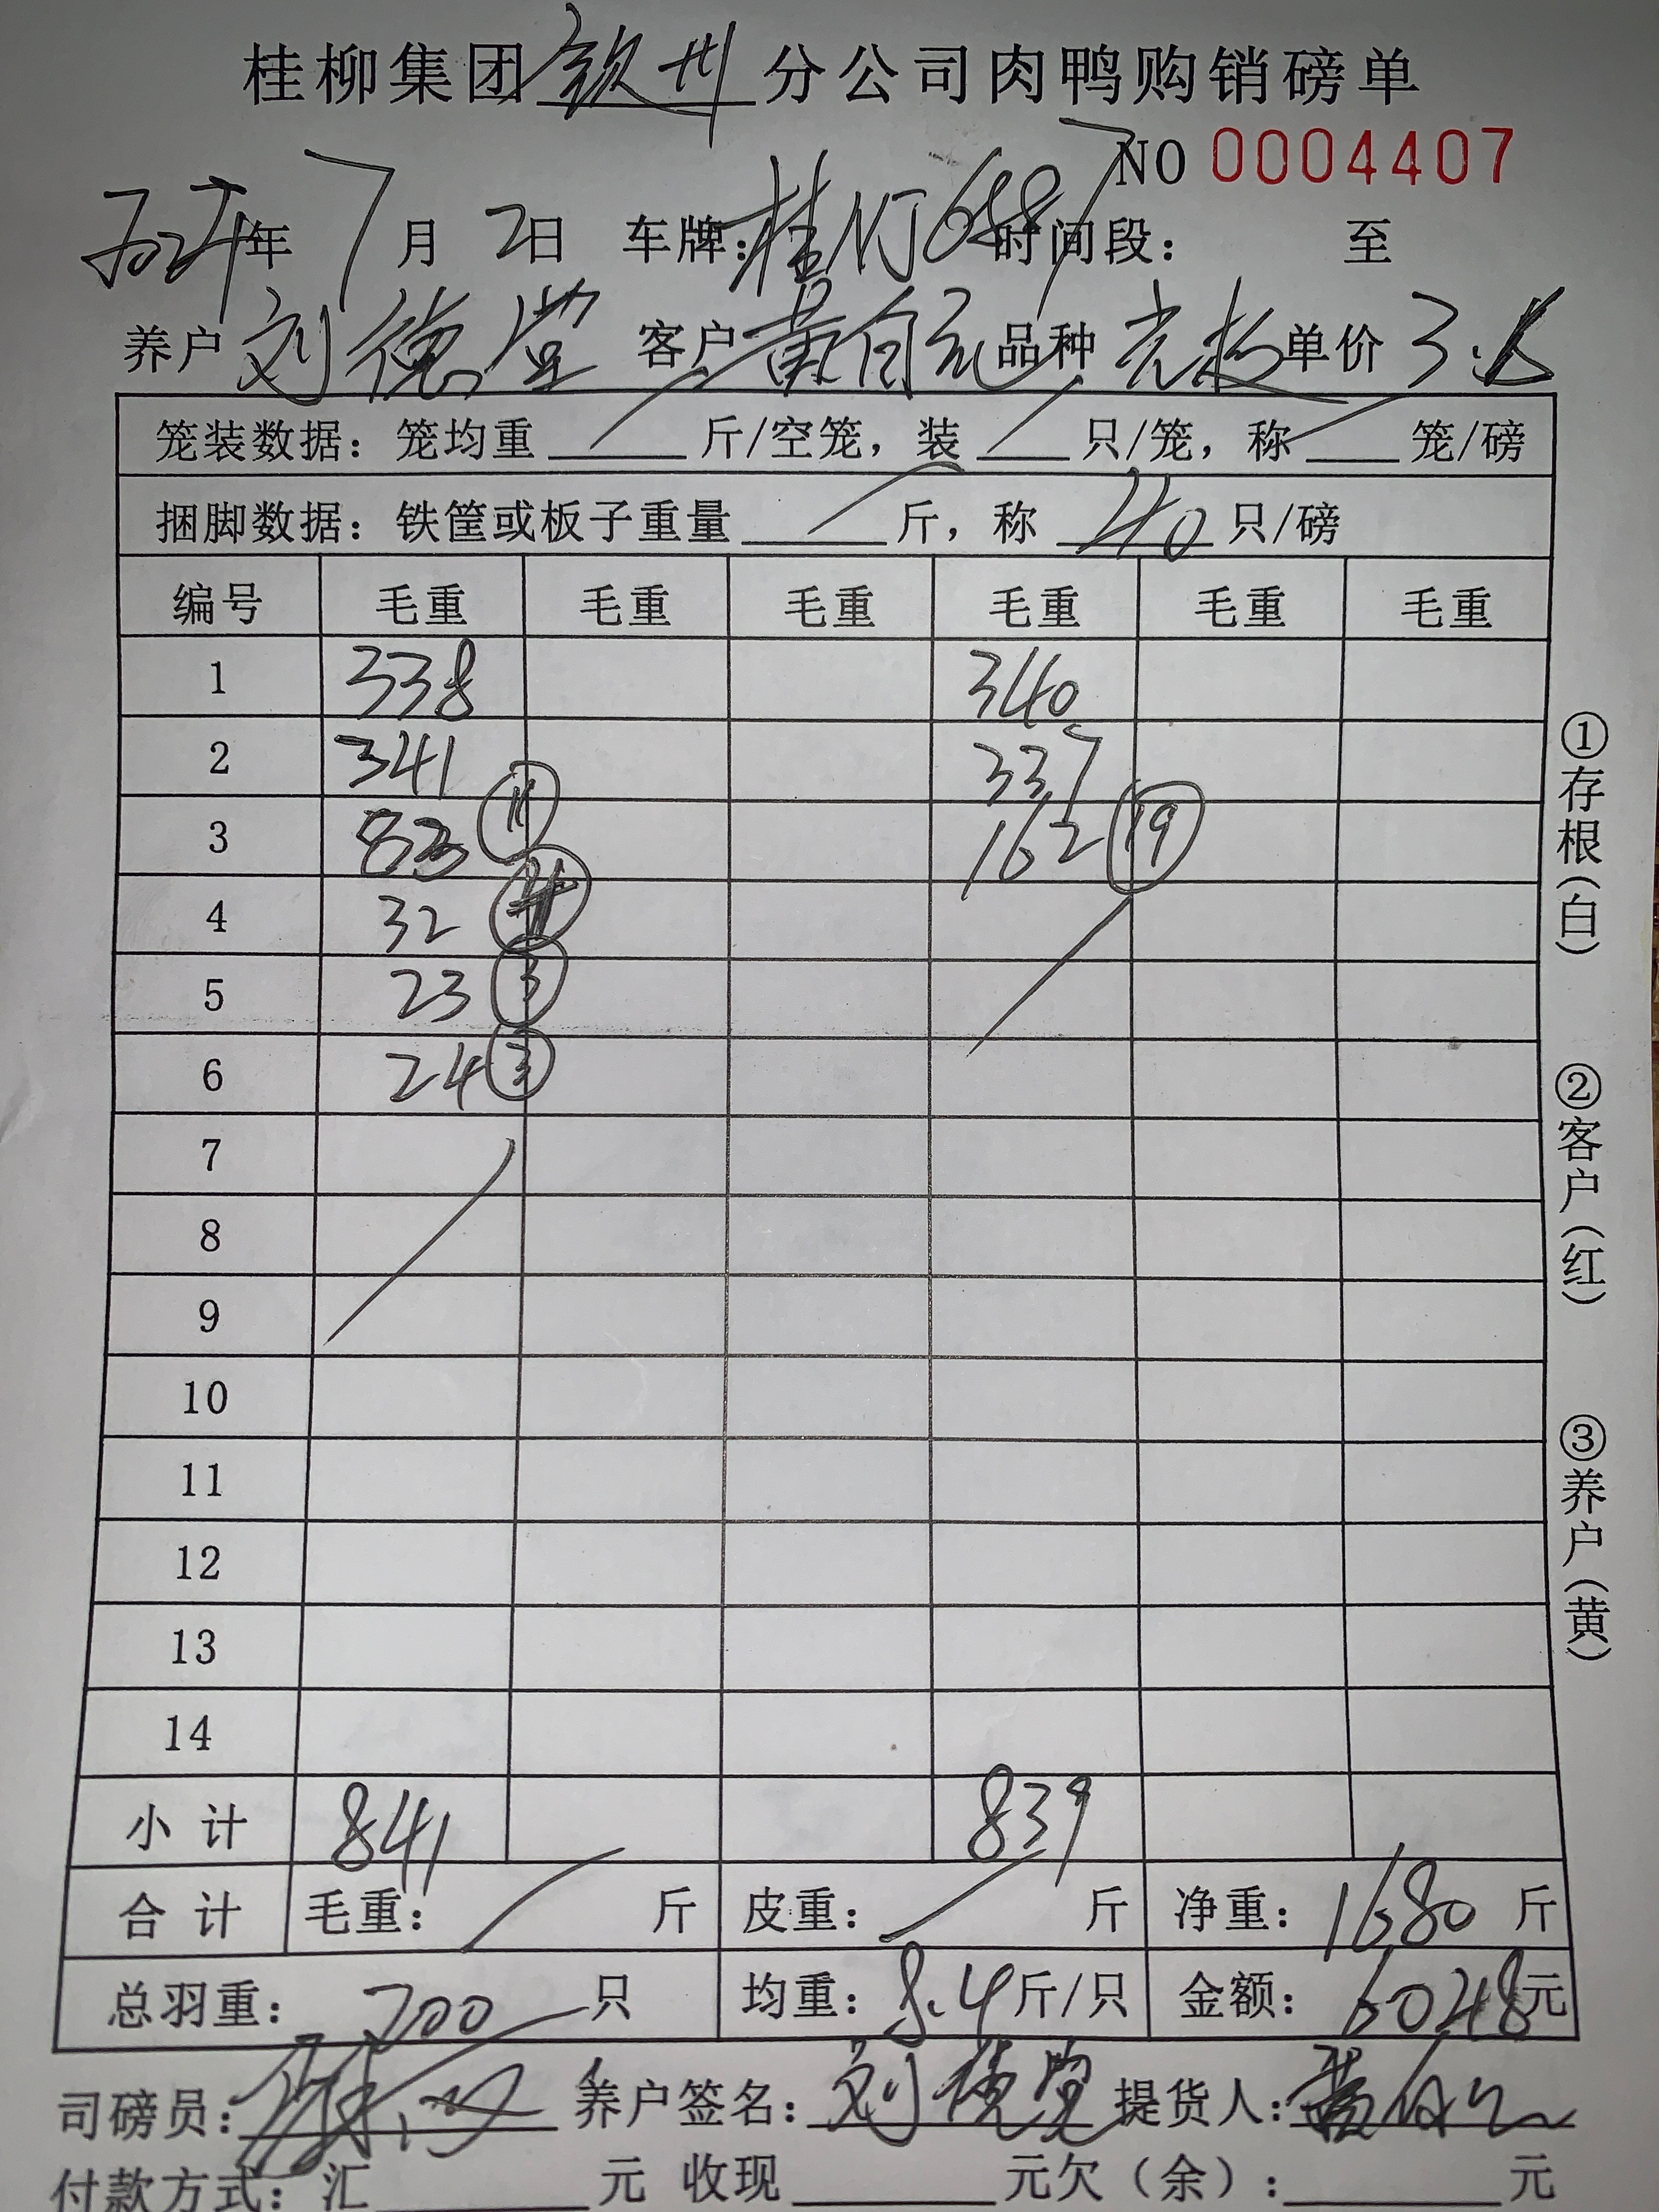 桂柳集团钦州分公司肉鸭购销磅单
NO 0004407
2024年 7月 2日 车牌:桂N 6887 时间段: 至
养户 刘德堂 客户 黄自元 品种 单价 3.6
笼装数据: 笼均重 斤/空笼, 装 只/笼, 称 笼/磅
捆脚数据: 铁筐或板子重量 斤, 称 40 只/磅
编号 毛重 毛重 毛重 毛重 毛重 毛重
1 338 340
2 341 337
3 83 11 162 19
4 32 4
5 23 3
6 24 3
7
8
9
10
11
12
13
14
小计 841 839
合计 毛重: 斤 皮重: 斤 净重: 1680 斤
总羽重: 200 只 均重: 8.4 斤/只 金额: 6048元
司磅员: 养户签名: 刘德堂 提货人: 黄自元
付款方式: 汇 元 收现 元欠(余): 元
①存根(白)
②客户(红)
③养户(黄)